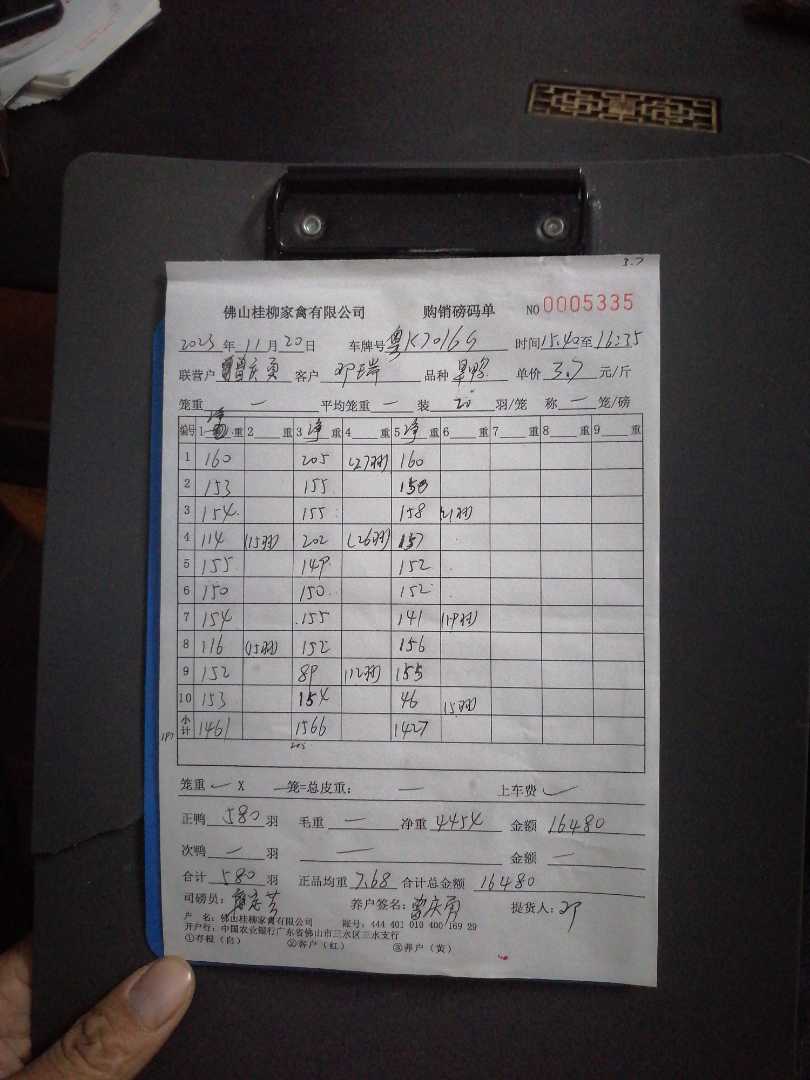 3.7
佛山桂柳家禽有限公司 购销磅码单 NO 0005335
2023年 11月 20日 车牌号 粤K70169 时间 15.40至 16:35
联营户 雷庆勇 客户 邓瑞 品种 单价 3.7 元/斤
笼重 一 平均笼重 一 装 20 羽/笼 称 一 笼/磅
编号 1 净 重 2 重 3 净 重 4 重 5 净 重 6 重 7 重 8 重 9 重
1 160 205 (27羽) 160
2 153 155 150
3 154 155 158 21羽
4 114 (15羽) 202 (26羽) 157
5 155 149 152
6 150 150 152
7 154 155 141 (19羽)
8 116 (15羽) 152 156
9 152 89 (12羽) 155
10 153 154 46 15羽)
小计 1461 1566 1427
197
205
笼重 一 X 一 笼=总皮重: 一 上车费
正鸭 580 羽 毛重 一 净重 4454 金额 16480
次鸭 一 羽 一 金额 一
合计 580 羽 正品均重 7.68 合计总金额 16480
司磅员: 养户签名: 雷庆勇 提货人: 邓
户 名: 佛山桂柳家禽有限公司 账号: 444 401 010 400 169 29
开户行: 中国农业银行广东省佛山市三水区三水支行
①存根(白) ②客户(红) ③养户(黄)